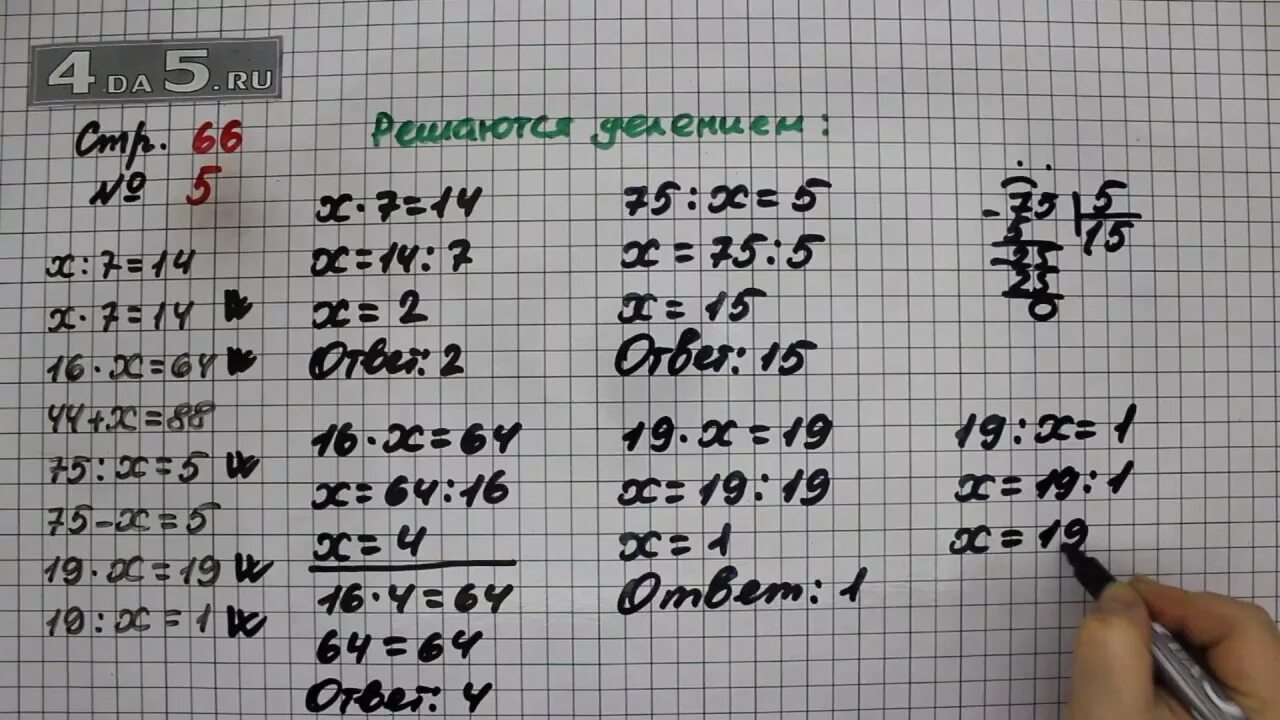 4DA5.RU
Стр. 66
№ 5
х:7=14
х·7=14
16·х=64
44+х=88
75:х=5
75-х=5
19·х=19
19:х=1
Решаются делением:
х·7=14
х=14:7
х=2
Ответ: 2
16·х=64
х=64:16
х=4
16·4=64
64=64
Ответ: 4
75:х=5
х=75:5
х=15
Ответ: 15
19·х=19
х=19:19
х=1
Ответ: 1
-75|5
5 15
-25
25
0
19:х=1
х=19:1
х=19